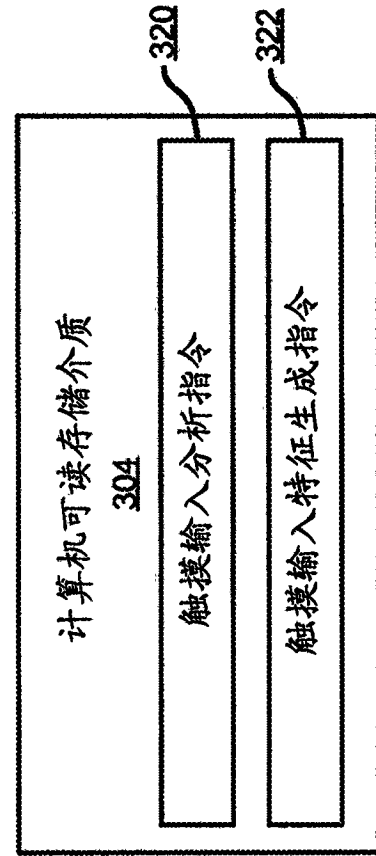 计算机可读存储介质
304
触摸输入分析指令
320
触摸输入特征生成指令
322